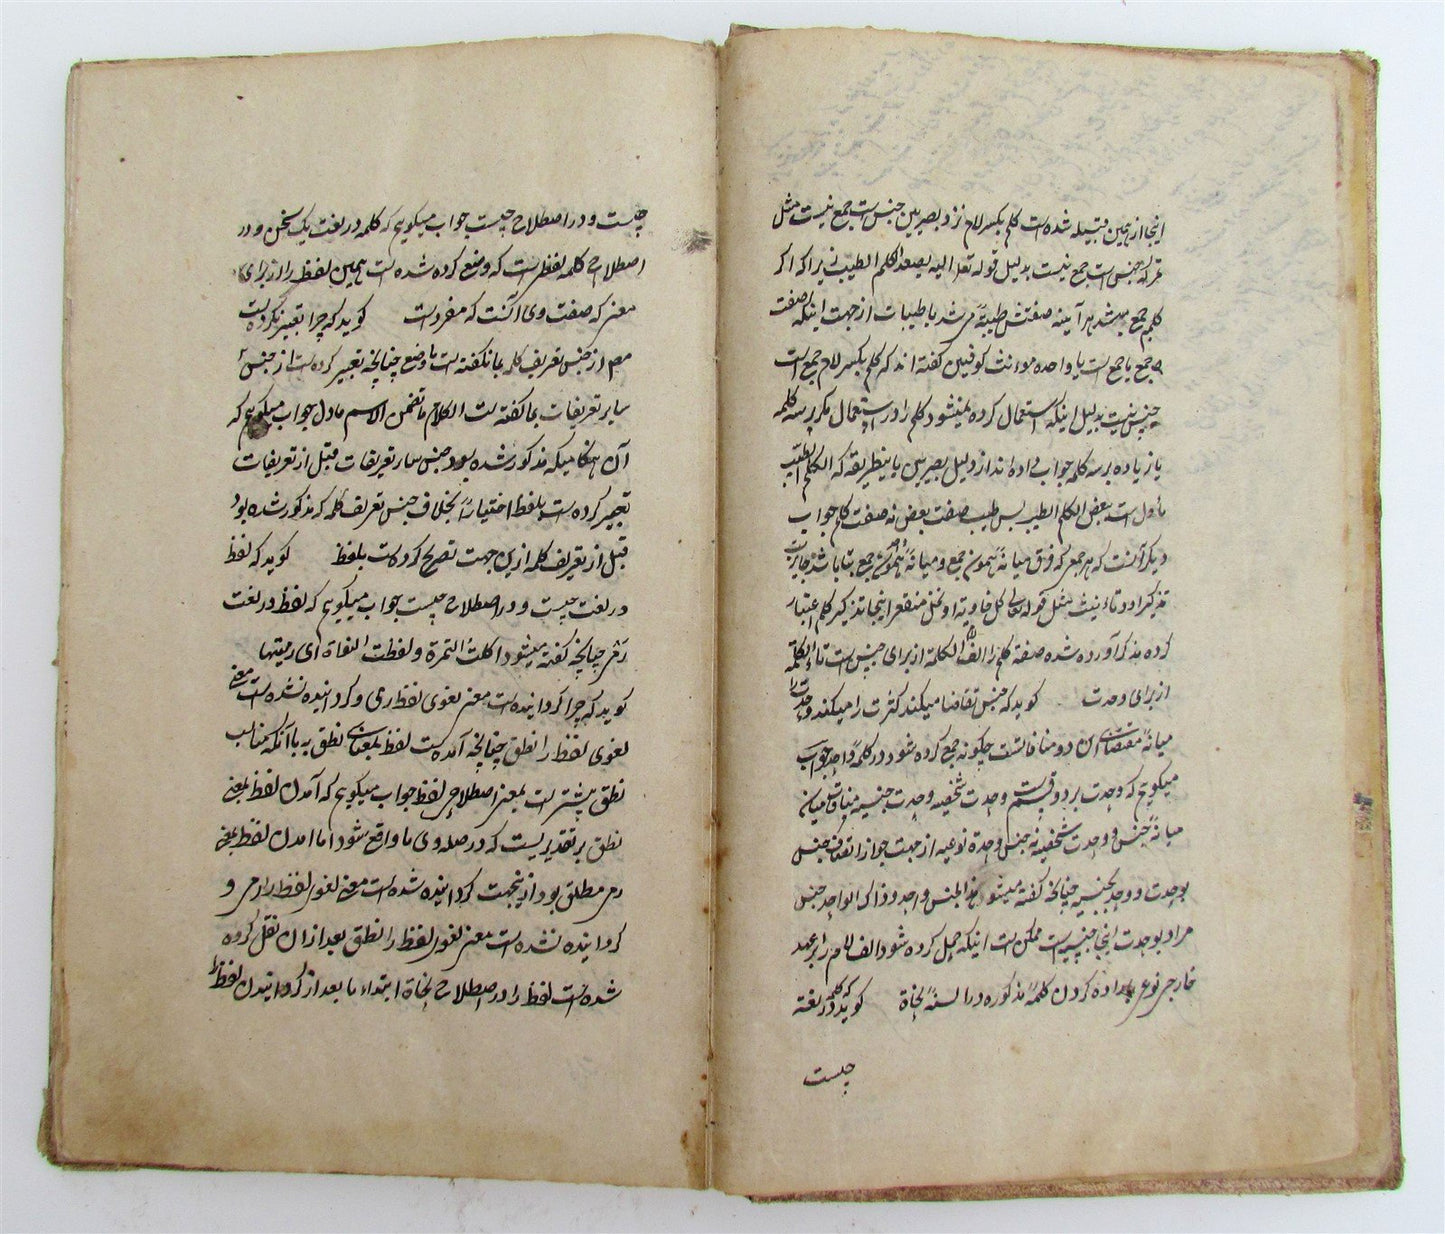 اینجا از همین قبیله شده است کلم بکسر لام نزد بصریین جنس است جمع نیست مثل
تمر که جنس است جمع نیست بدلیل قوله تعالی الیه یصعد الکلم الطیب زیرا که اکر
کلم جمع میشد هر آینه صفتش طیبة می شد یا طیبات از جهت اینکه صفت
جمع یا جمع است یا واحده مؤنث کوفیین کفته اند که کلم بکسر لام جمع است
جنس نیست بدلیل اینکه استعمال کرده نمیشود کلم را در استعمال مکر بر سه کلمه
یا زیاده بر سه کلمه جواب داده اند از دلیل بصریین باینطریقه که الکلم الطیب
مأول است ببعض الکلم الطیب پس طیب صفت بعض نه صفت کلم جواب
دیکر آنست که هر جمعی که فرق میانهٔ همون جمع و میانهٔ مفرد همون جمع بتا باشد جایز است
تذکیر او و تأنیث مثل قوله تعالی نخل خاویة او نخل منقعر اینجا تذکیر کلم اعتبار
کرده مذکر آورده شده صفة کلم را الف و لام الکلمة از برای جنس است تاء الکلمة
از برای وحدت کوید که جنس تقاضا میکند کثرت را میکند وحدت را
میانهٔ مقتضای این دو منافاتست چکونه جمع کرده شود در کلمهٔ واحد جواب
میکویم که وحدت بر دو قسم است وحدت شخصیه وحدت جنسیه منافات میان
میانهٔ جنس و وحدت شخصیه نه جنس وحدة نوعیه از جهت جواز اتصاف جنس
بوحدت و وحدت بجنسیه چنانچه کفته میشود هذا الجنس واحد و ذاک الواحد جنس
مراد بوحدت اینجا جنسیست ممکن است اینکه حمل کرده شود الف لام را بر عهد
خارجی نوعی باراده کردن کلمهٔ مذکوره در السنهٔ نحاة کوید که کلمه در لغة
چیست
چیست و در اصطلاح چیست جواب میکویم که کلمه در لغت یک سخن و در
اصطلاح کلمه لفظی است که وضع کرده شده است همین لفظ را از برای
معنی که صفت وی آنست که مفرد است کوید که چرا تعبیر نکرده است
مص از جنس تعریف کلمه بما نکفته است ما وضع چنانچه تعبیر کرده است از جنس
سایر تعریفات بما کفته است الکلام ما تضمن الاسم ما دل جواب میکویم که
آن هنکامیکه مذکور شده بود جنس سایر تعریفات قبل از تعریفات
تعبیر کرده است بلفظ اختیاراً بخلاف جنس تعریف کلمه که مذکور شده بود
قبل از تعریف کلمه ازین جهت تصریح کرده است بلفظ کوید که لفظ
در لغت چیست و در اصطلاح چیست جواب میکویم که لفظ در لغت
رمی چنانچه کفته میشود اکلت التمرة و لفظت النواة ای رمیتها
کوید که چرا کردانیده است معنی لغوی لفظ رمی و کردانیده نشده است معنی
لغوی لفظ را نطق چنانچه آمده است لفظ بمعنای نطق به باآنکه مناسب
نطق بیشتر است بمعنی اصطلاحی لفظ جواب میکویم که آمدن لفظ بمعنی
نطق بر تقدیریست که در صله وی ما واقع شود اما آمدن لفظ بمعنی
رمی مطلق بود از ینجهت کردانیده شده است معنی لغوی لفظ را رمی و
کردانیده نشده است معنی لغوی لفظ را نطق بعد از ان نقل کرده
شده است لفظ را در اصطلاح نحاة ابتداء یا بعد از کردانیدن لفظ را